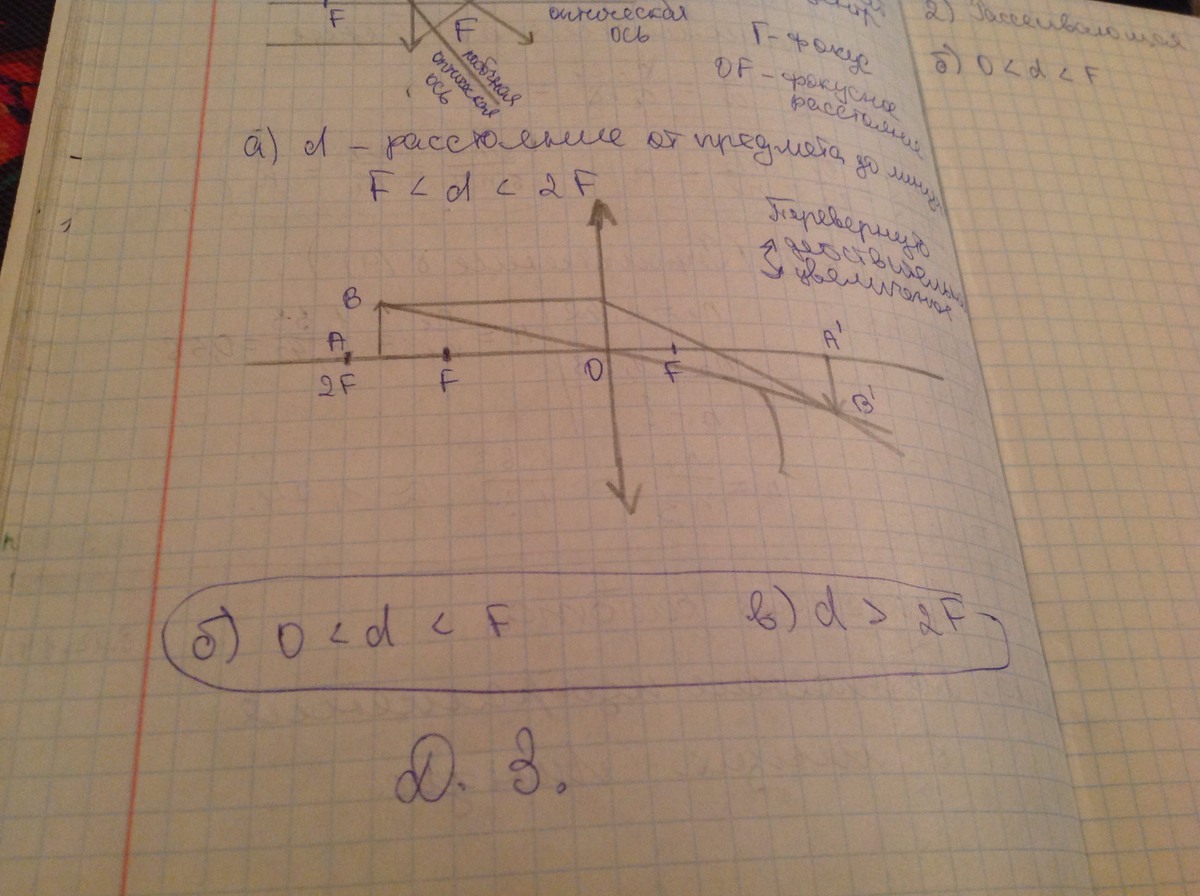 F
F
оптическая
ось
побочная
оптическая
ось
F - фокус
OF - фокусное
расстояние
а) d - расстояние от предмета до линзы
F < d < 2F
действительное
B
A
2F
F
O
F
A'
B'
б) 0 < d < F
в) d > 2F
Д. З.
2) Рассеивающая
б) 0 < d < F